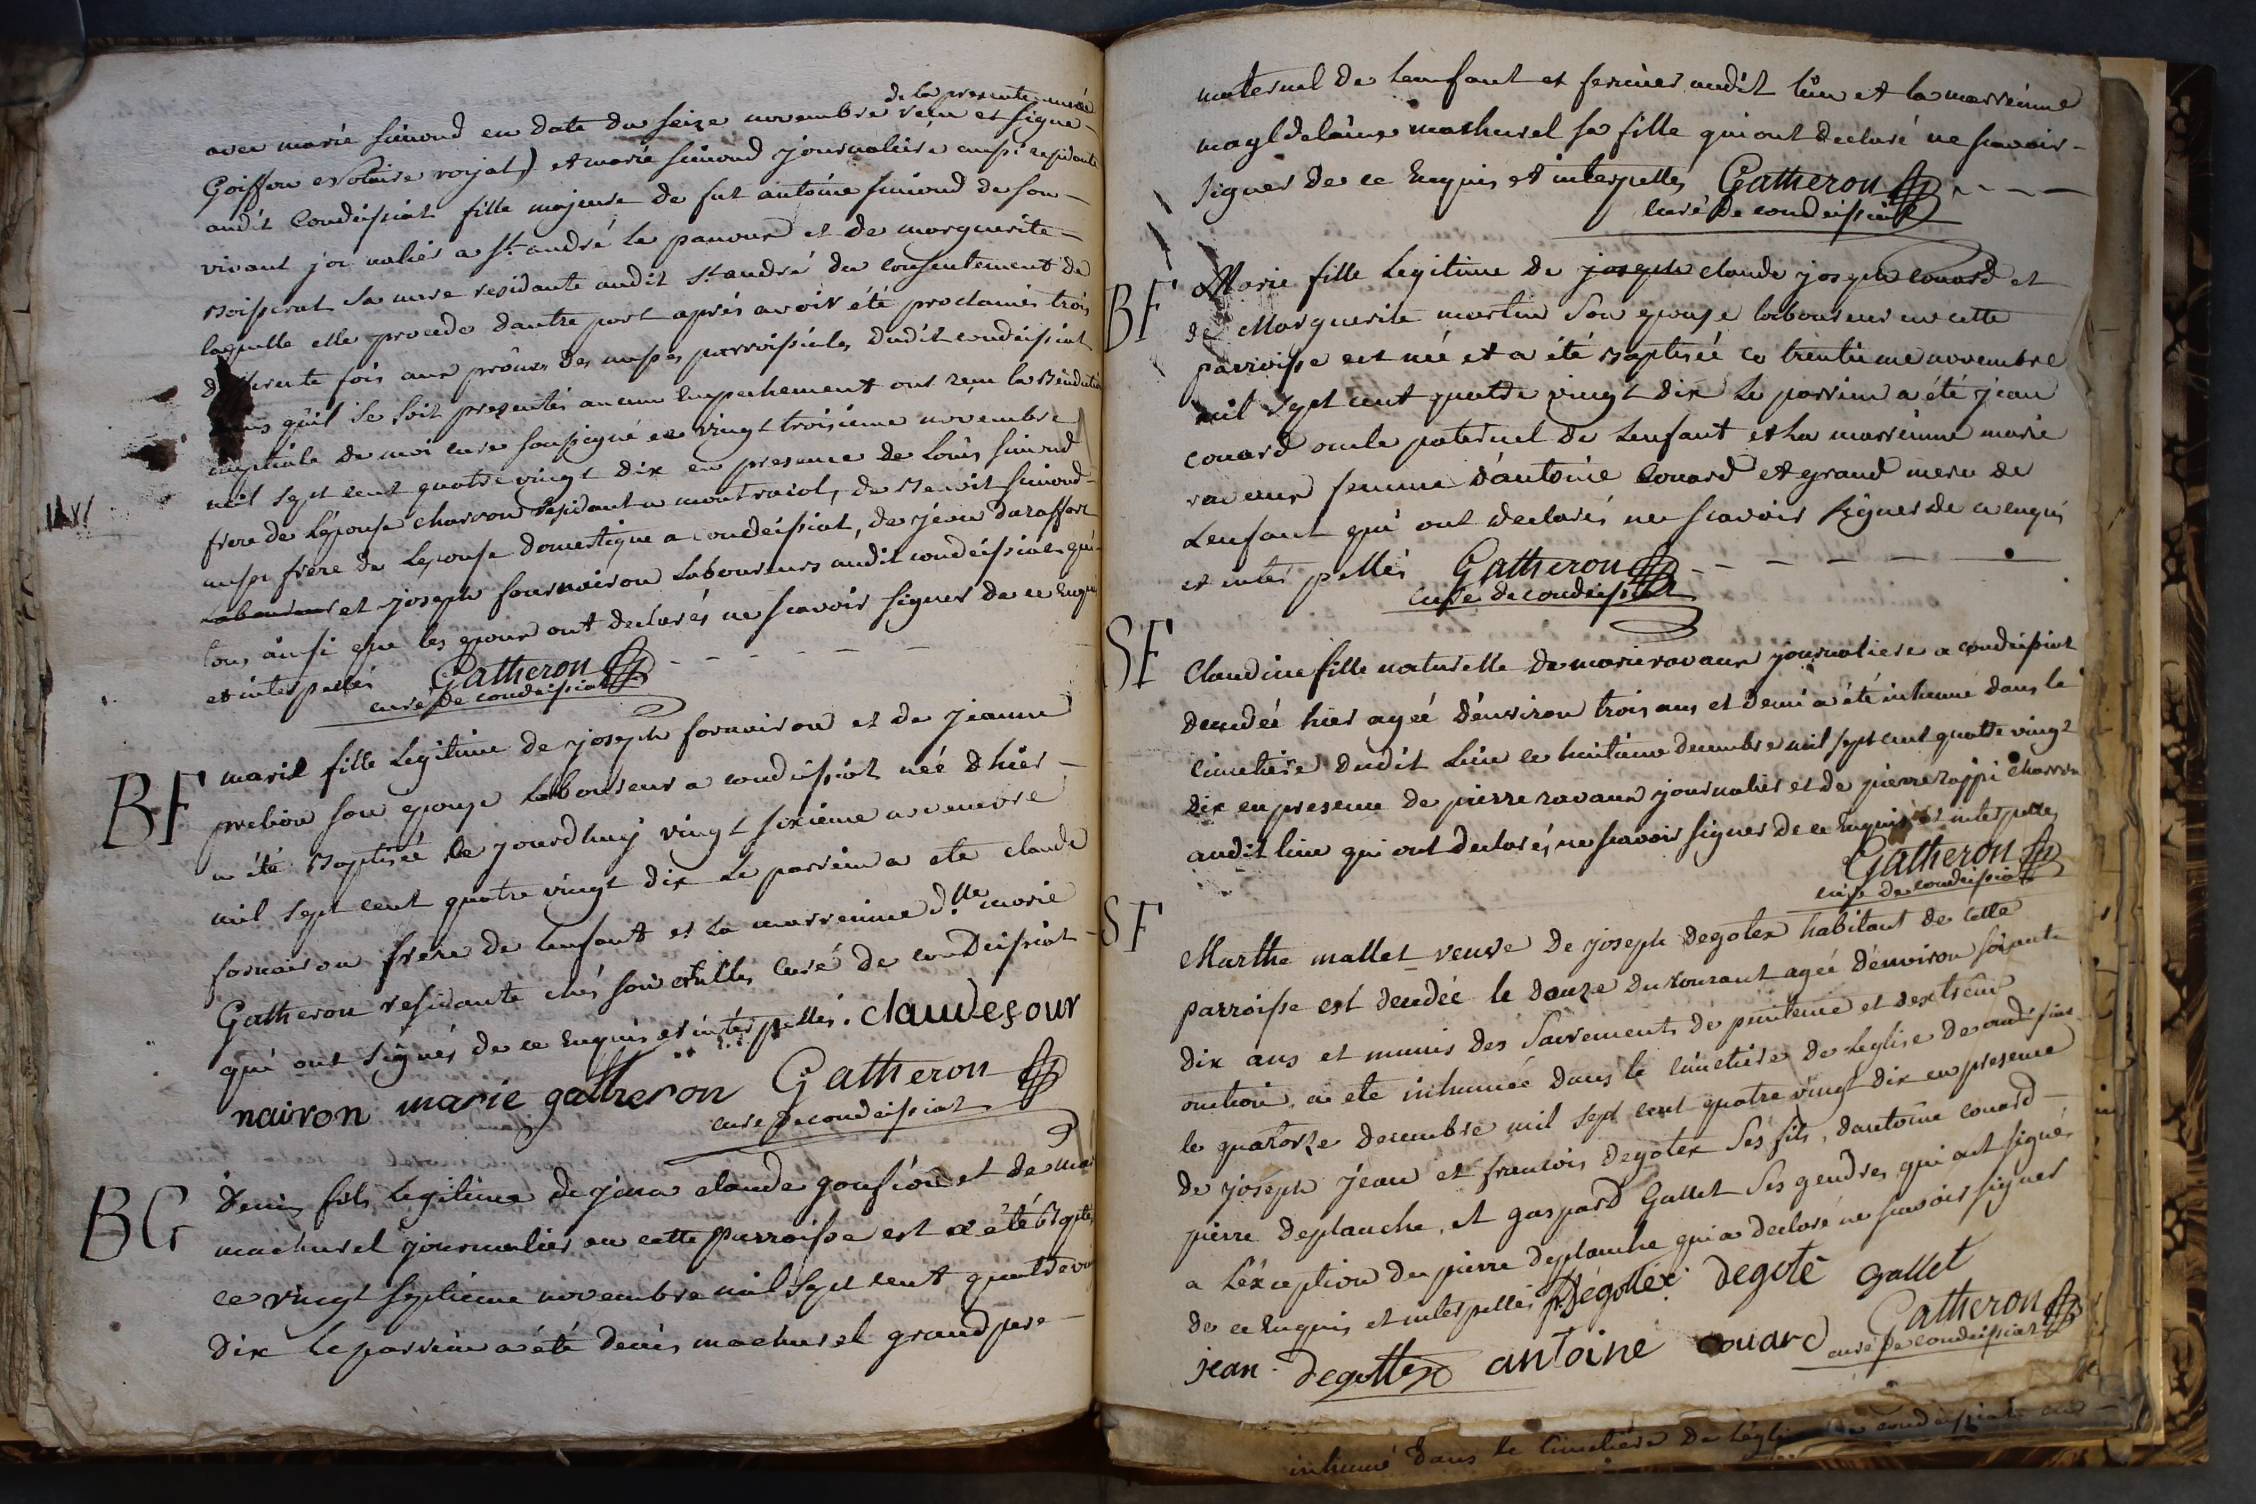 de la presente année
avec marie simond en date du seize novembre reçu et signé
Goiffon Notaire royal) et marie simond journaliere aussi residante
audit Condeissiat fille majeure de fut antoine simond de son
vivant journalier a St. andré le panoux et de marguerite
sa mere residante audit St andré du consentement de
laquelle elle procede dautre part aprés avoir été proclamés trois
differente fois aux prônes des messes parroissiales dudit condeissiat
sans quil se soit presentés aucun Empechement ont reçu la Bénédiction
nuptiale de moi curé soussigné ce vingt troisieme novembre
mil sept cent quatre vingt dix en presence de Louis simond
frere de Lépouse charron residant a montracol, de Benoit simond
aussi frere de Lepouse domestique a condeissiat, de jean duraffort
Laboureur et joseph fournairon Laboureurs audit condeissiat qui
tous ainsi que les epoux ont declarés ne scavoir signer de ce Enquis
et interpellés Gatheron
curé de condeissiat
BF marie fille Legitime de joseph fornairon et de jeanne
prelion son epouse Laboureur a condeissiat née dhier
a été Baptisée le jourdhuy vingt sixieme novembre
mil sept cent quatre vingt dix Le parrein a ete claude
fornairon frere de Lenfant et La marreinne d.lle marie
Gatheron residante chés son curé de conDeissiat
qui ont signés de ce Enquis et interpellés. claude four
nairon marie gatheron Gatheron
curé de condeissiat
BG Denis fils Legitime de jean claude gonsion et de
machurel journalier en cette parroisse est a été Bapt
ce vingt septieme novembre mil sept cent quatre
Dix Le parrein a été denis machurel grand pere
maternel de Lenfant et fermier audit lieu et la marreinne
magldelaine machurel sa fille qui ont declaré ne scavoir
signer De ce Enquis et interpellés Gatheron
curé de condeissiat
BF Marie fille Legitime de joseph claude joseph couard et
de Marguerite martin son epouse laboureur en cette
parroisse est née et a été Baptisée ce trentieme novembre
mil sept cent quatre vingt dix Le parrein a été jean
couard oncle paternel de Lenfant et La marreinne marie
ravaux femme d'antoine Couard et grand mere de
Lenfant qui ont declarés ne scavoir signer de ce enquis
et interpellés Gatheron
curé de condeissiat
SF Claudine fille naturelle de marie ravaux journaliere a condeissiat
decedée hier agée d'environ trois ans et demi a été inhumé dans le
cimetiere dudit Lieu ce huitieme decembre mil sept cent quatre vingt
dix en presence de pierre ravaux journalier et de pierre rappi charron
audit lieu qui ont declarés ne scavoir signer de ce Enquis et interpellés
Gatheron
curé de condeissiat
SF Marthe mallet veuve De joseph Degotex habitant de cette
parroisse est decedée le douze du courant agée d'environ soixante
dix ans et munis des sacrements de penitence et dextreme
onction a ete inhumée dans le cimetiere de Leglise de condeissiat
le quatorze decembre mil sept cent quatre vingt dix en presence
de joseph jean et francois Degotex ses fils, dantoine couard
pierre deplanche, et gaspard Gallet ses gendres qui ont signé
a L'exception de pierre deplanche qui a declaré ne scavoir signer
de ce Enquis et interpellés Dégotex Degote Gallet
jean Degottex antoine couard Gatheron
curé de condeissiat
inhumé dans le cimetiere de Léglise de condeissiat